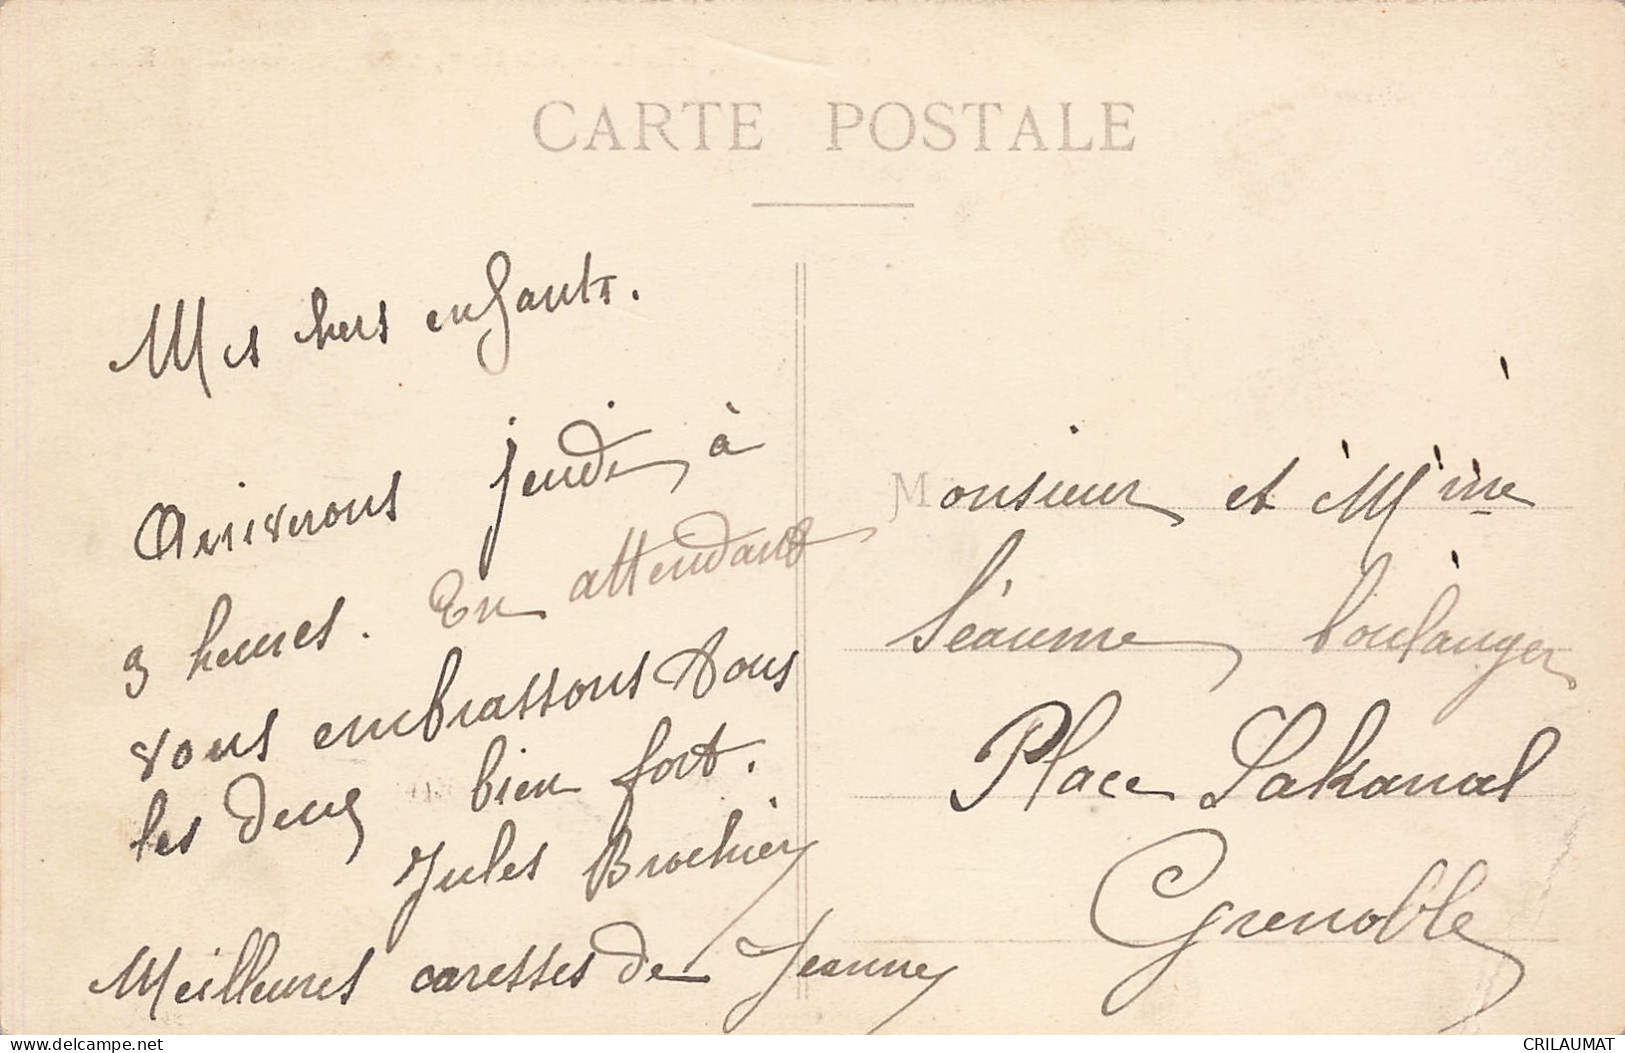 CARTE POSTALE
Mes chers enfants.
Arriverons jeudi à
3 heures. En attendant
vous embrassons tous
les deux bien fort.
Jules Brochier
Meilleures caresses de Jeanne
Monsieur et Mme
Séaume boulanger
Place Lakanal
Grenoble
www.delcampe.net
CRILAUMAT